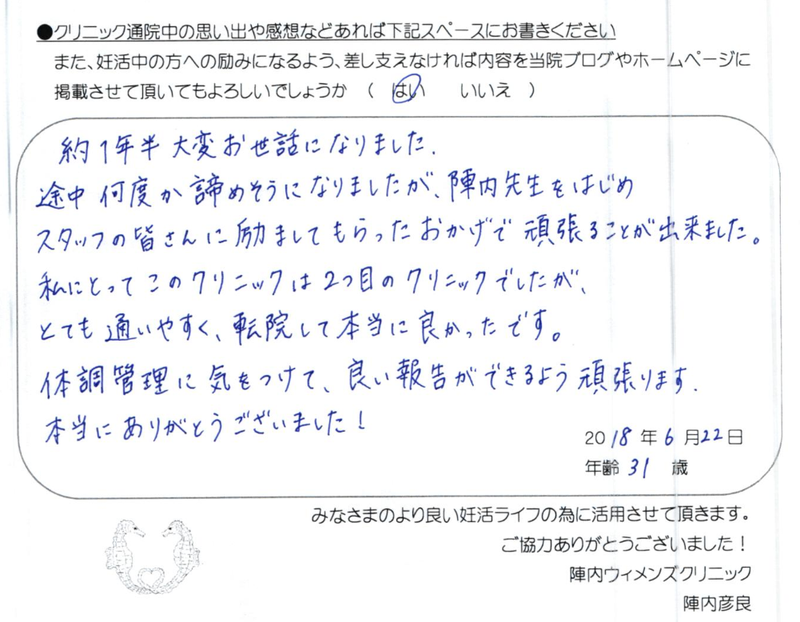 ●クリニック通院中の思い出や感想などあれば下記スペースにお書きください
また、妊活中の方への励みになるよう、差し支えなければ内容を当院ブログやホームページに
掲載させて頂いてもよろしいでしょうか （ はい いいえ ）
約1年半 大変お世話になりました.
途中 何度か 諦めそうになりましたが、陣内先生をはじめ
スタッフの皆さんに励ましてもらったおかげで 頑張ることが出来ました。
私にとってこのクリニックは2つ目のクリニックでしたが、
とても通いやすく、転院して本当に良かったです。
体調管理に気をつけて、良い報告ができるよう頑張ります.
本当にありがとうございました！
2018年6月22日
年齢 31 歳
みなさまのより良い妊活ライフの為に活用させて頂きます。
ご協力ありがとうございました！
陣内ウィメンズクリニック
陣内彦良